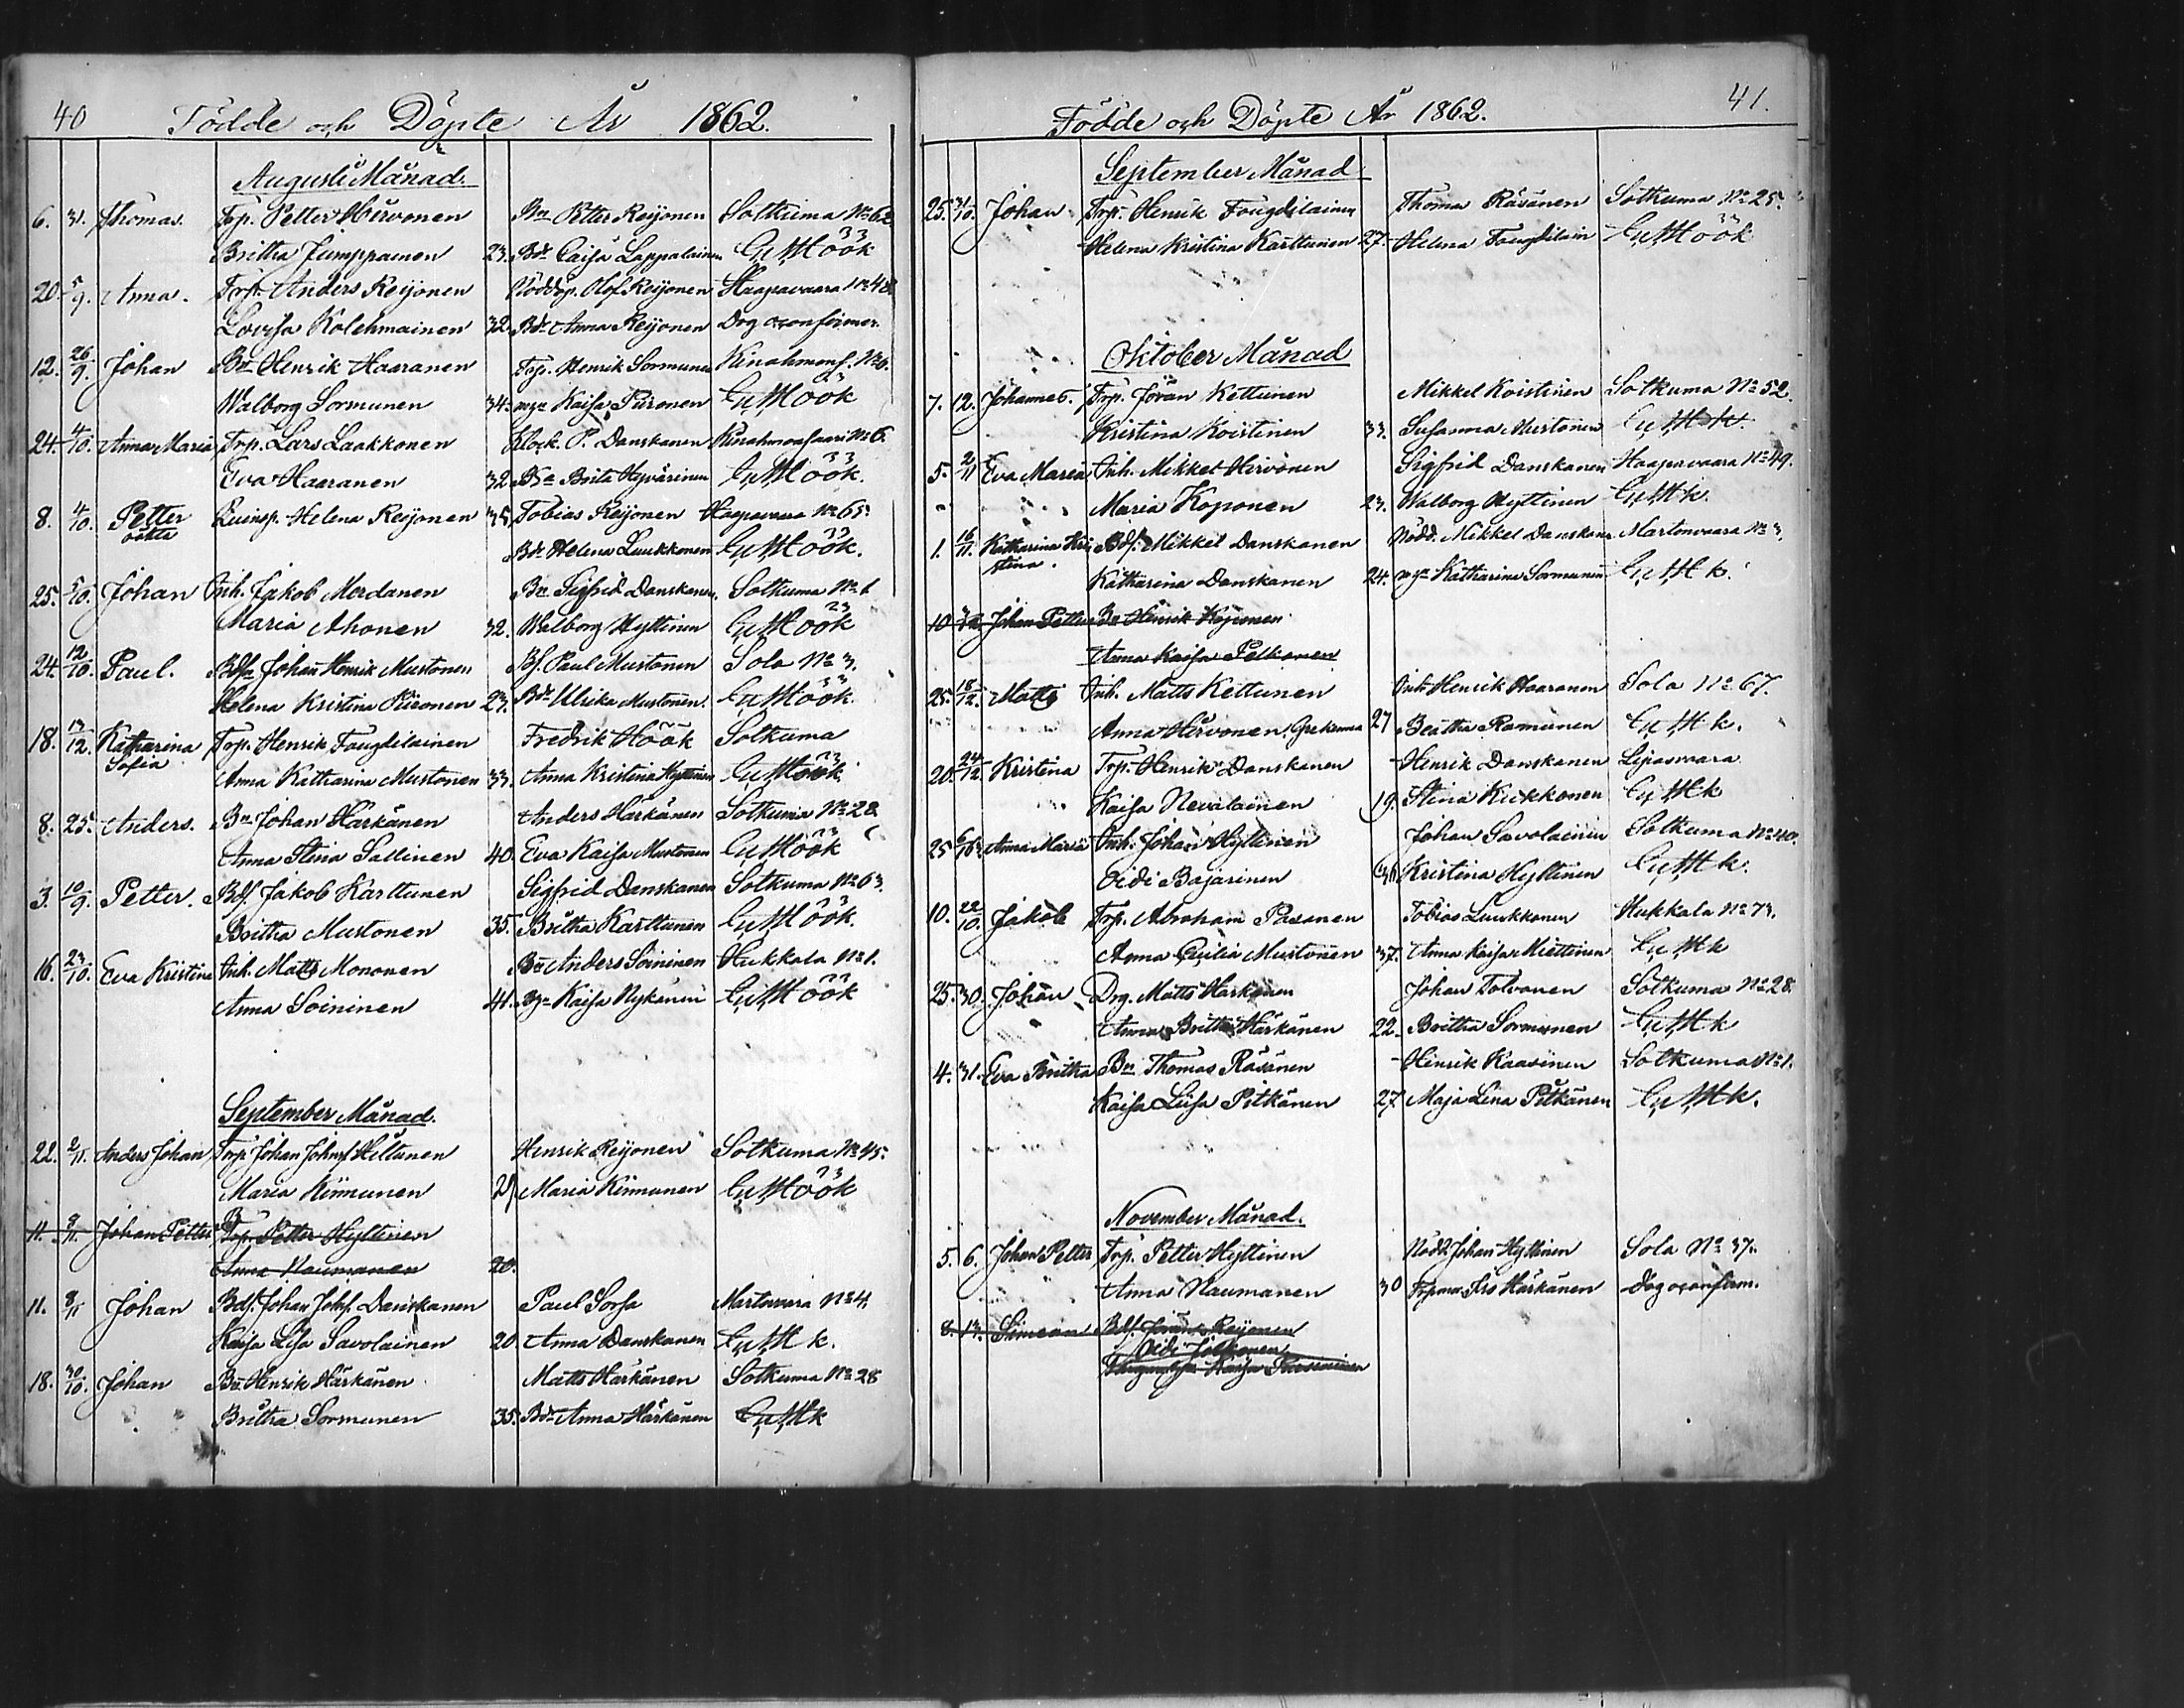 40 Födde och Döpte År 1862.
Augusti Månad.
6. 31. Thomas. Trp. Petter Hirvonen Bn Petter Reijonen Sotkuma No 62
Britha Jumppainen 23. Bdr Caisa Lappalainen
20. 5/9. Anna. Trp. Anders Reijonen Olof Reijonen Haapavaara No 48
Lovisa Kolehmainen 32. Bdr Anna Reijonen
12. 26/9. Johan Bn Henrik Haaranen Trp. Henrik Sormunen No 6.
Walborg Sormunen 34. Kaisa Piironen
24. 4/10. Anna Maria Trp. Lars Laakkonen Klock. P. Danskanen No 6.
Eva Haaranen 32. Brita Hyvärinen
8. 4/10. Petter Helena Reijonen 35. Tobias Reijonen Haapavaara No 65.
oäkta Bdr Helena Luukkonen
25. 5/10. Johan Inh. Jakob Merdanen Bn Sigfrid Danskanen. Sotkuma No 1
Maria Ahonen 32. Walborg Hyttinen
24. 12/10. Paul. Johan Henrik Mustonen Paul Mustonen Sola No 3.
Helena Kristina Piironen 23. Bdr Ulrika Mustonen.
18. 12. Katharina Trp. Henrik Fougdilainen Fredrik Höök Sotkuma
Sofia Anna Katharina Mustonen 33. Anna Kristina Hyttinen
8. 25. Anders. Bn Johan Härkänen Anders Härkänen Sotkuma No 28
Anna Stina Sallinen 40. Eva Kaisa Mustonen
3. 10/9. Petter. Bdf. Jakob Karttunen Sigfrid Danskanen Sotkuma No 63.
Britha Mustonen 35. Britha Karttunen
16. 23/10. Eva Kristina Inh. Matts Mononen Bn Anders Soininen Hukkala No 1.
Anna Soininen 41. Kaisa Nykänen
September Månad.
22. 2/11. Anders Johan Trp. Johan Hiltunen Henrik Reijonen Sotkuma No 45.
Maria Kinnunen Maria Kinnunen
11. 8/11. Johan Petter Trp. Petter Hyttinen
Anna Naumanen 20.
11. 8/11 Johan Bdf. Johan Danskanen Paul Sorsa Martovaara No 4.
Kaisa Lisa Savolainen 20. Anna Danskanen
18. 30/10. Johan Bn Henrik Härkänen Matts Härkänen Sotkuma No 28
Britha Sormunen 35. Bdr Anna Härkänen
Födde och Döpte År 1862. 41.
September Månad
25. 31/10. Johan Trp. Henrik Fougdilainen Thomas Räsänen Sotkuma No 25.
Helena Kristina Karttunen 27. Helena Fougdilain
Oktober Månad
7. 12. Johannes. Trp. Jöran Kettunen Mikkel Koistinen Sotkuma No 52.
Kristina Koistinen 33. Susanna Mustonen
5. 2/11 Eva Maria Inh. Mikkel Hirvonen Sigfrid Danskanen Haapavaara No 49.
Maria Koponen 23. Walborg Hyttinen
1. 16/11. Katharina Kri Bdf. Mikkel Danskanen Mikkel Danskanen Martonvaara No 3.
stina. Katharina Danskanen 24. Katharina Sormunen
10 Johan Petter Bn Henrik
Anna Kaisa Pelkonen
25. 18/12. Matts Inh. Matts Kettunen Inh. Henrik Haaranen Sola No 67.
Anna Hirvonen, 27 Beatha Romunen
20. 24/12 Kristina Trp. Henrik Danskanen Henrik Danskanen Lipasvaara
Kaisa Nevalainen 19. Stina Kukkonen
25 Anna Maria Inh. Johan Hyttinen Johan Savolainen Sotkuma No 40.
Oidi Bajarinen 36 Kristina Hyttinen
10. 22/10. Jakob Trp. Abraham Pasanen Tobias Luukkonen Hukkala No 73.
Anna Cecilia Mustonen 37. Anna Kaisa Miettinen
25. 30. Johan Drg. Matts Härkönen Johan Tolvanen Sotkuma No 28.
Anna Britha Härkänen 22. Britha Sormunen
4. 31. Eva Britha Bn Thomas Räsänen Henrik Kaasinen Sotkuma No 1.
Kaisa Liisa Pitkänen 27 Maja Lena Pitkänen
November Månad.
5. 6. Johan Petter Trp. Petter Hyttinen Johan Hyttinen Sola No 37.
Anna Naumanen 30 Härkänen
8. 13. Simeon Bdf. Jöran Reijonen
Oidi
Kaisa